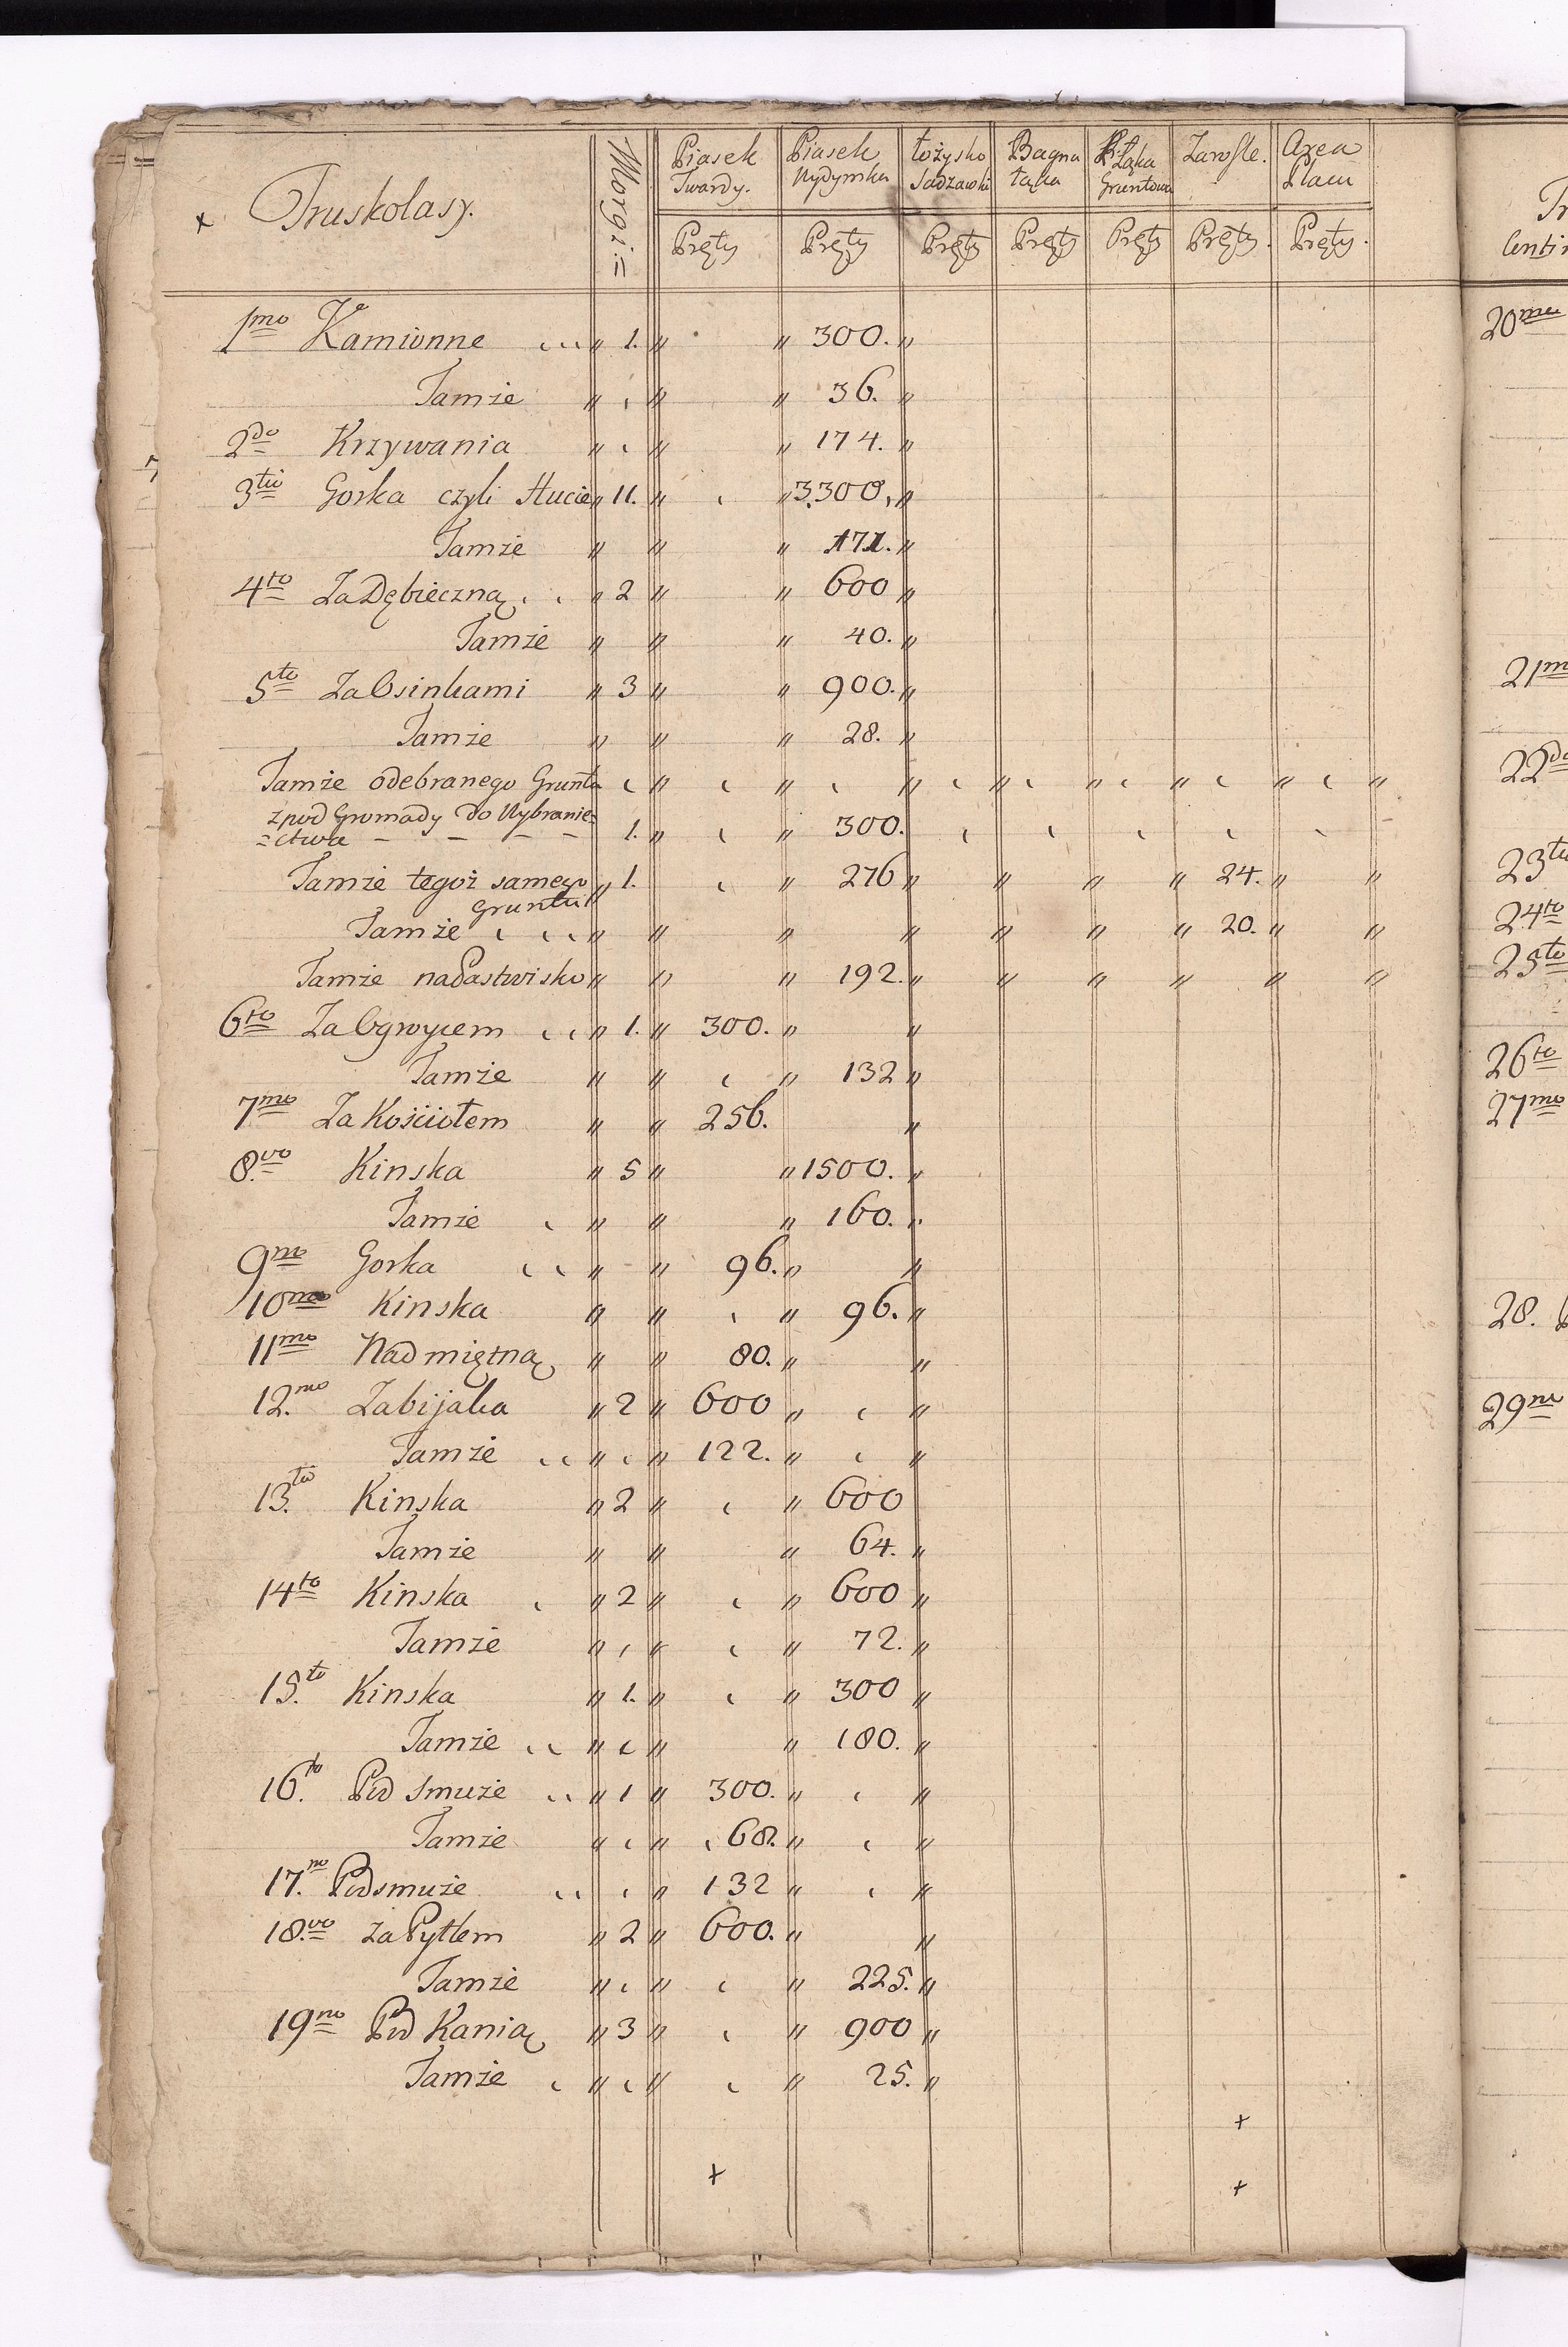 + Truskolasy. Morgi = Piasek Piasek Łożysko Bagna Łąka Zarosłe. Area
Twardy. Wydymka Sadzawki łąka Gruntowa Placu
Pręty Pręty Pręty Pręty Pręty Pręty. Pręty.
1mo Kamionne „ 1. „ „ 300. „
Tamże „ „ „ 36. „
2do Krzywania „ „ „ 174. „
3tio Gorka czyli Hucie „ 11. „ „ 3,300, „
Tamże „ „ „ 171. „
4to Za Dębieczną „ 2 „ „ 600 „
Tamże „ „ „ 40. „
5to Za Osinkami „ 3 „ „ 900. „
Tamże „ „ „ 28. „
Tamże odebranego Gruntu „ „ „ „ „ „ „ „
z pod Gromady do Wybranie= 1. „ „ 300.
=ctwa – – – –
Tamże tegoż samego „ 1. „ 276 „ „ „ „ 24. „ „
Gruntu
Tamże „ „ „ „ „ „ „ 20. „ „
Tamże na Pastwisko „ „ „ 192. „ „ „ „ „ „
6to Za Ogroycem „ 1. „ 300. „ „
Tamże „ „ „ 132 „
7mo Za Kościołem „ „ 256. „
8vo Kinska „ 5 „ „ 1500. „
Tamże „ „ „ 160. „
9no Gorka „ „ 96. „ „
10mo Kinska „ „ „ 96. „
11mo Nad miętną „ „ 80. „ „
12.mo Zabijaka „ 2 „ 600 „ „
Tamże „ „ 122. „ „
13.tio Kinska „ 2 „ „ 600
Tamże „ „ „ 64. „
14to Kinska „ 2 „ „ 600 „
Tamże „ „ „ 72. „
15.to Kinska „ 1. „ „ 300 „
Tamże „ „ „ 180. „
16.to Pod Smuże „ 1 „ 300. „ „
Tamże „ „ 68. „ „
17.mo Podsmuże „ 132 „ „
18.vo za Pytlem „ 2 „ 600. „ „
Tamże „ „ „ 225. „
19no Pod Kanią „ 3 „ „ 900 „
Tamże „ „ „ 25. „
+
+
+
20mo
21m
22do
23tio
24to
25to
26to
27mo
28.
29no